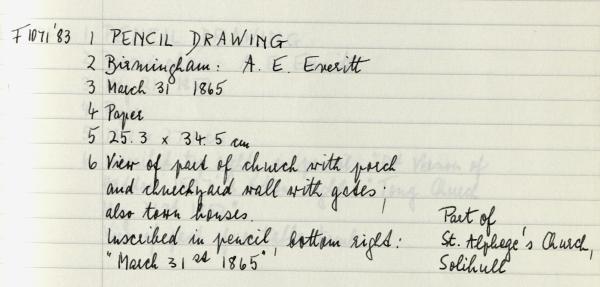 F1071'83 1 PENCIL DRAWING
2 Birmingham: A. E. Everitt
3 March 31 1865
4 Paper
5 25.3 x 34.5 cm
6 View of part of church with porch
and churchyard wall with gates;
also town houses.
Inscribed in pencil, bottom right:
"March 31st 1865"
Part of
St. Alphege's Church,
Solihull